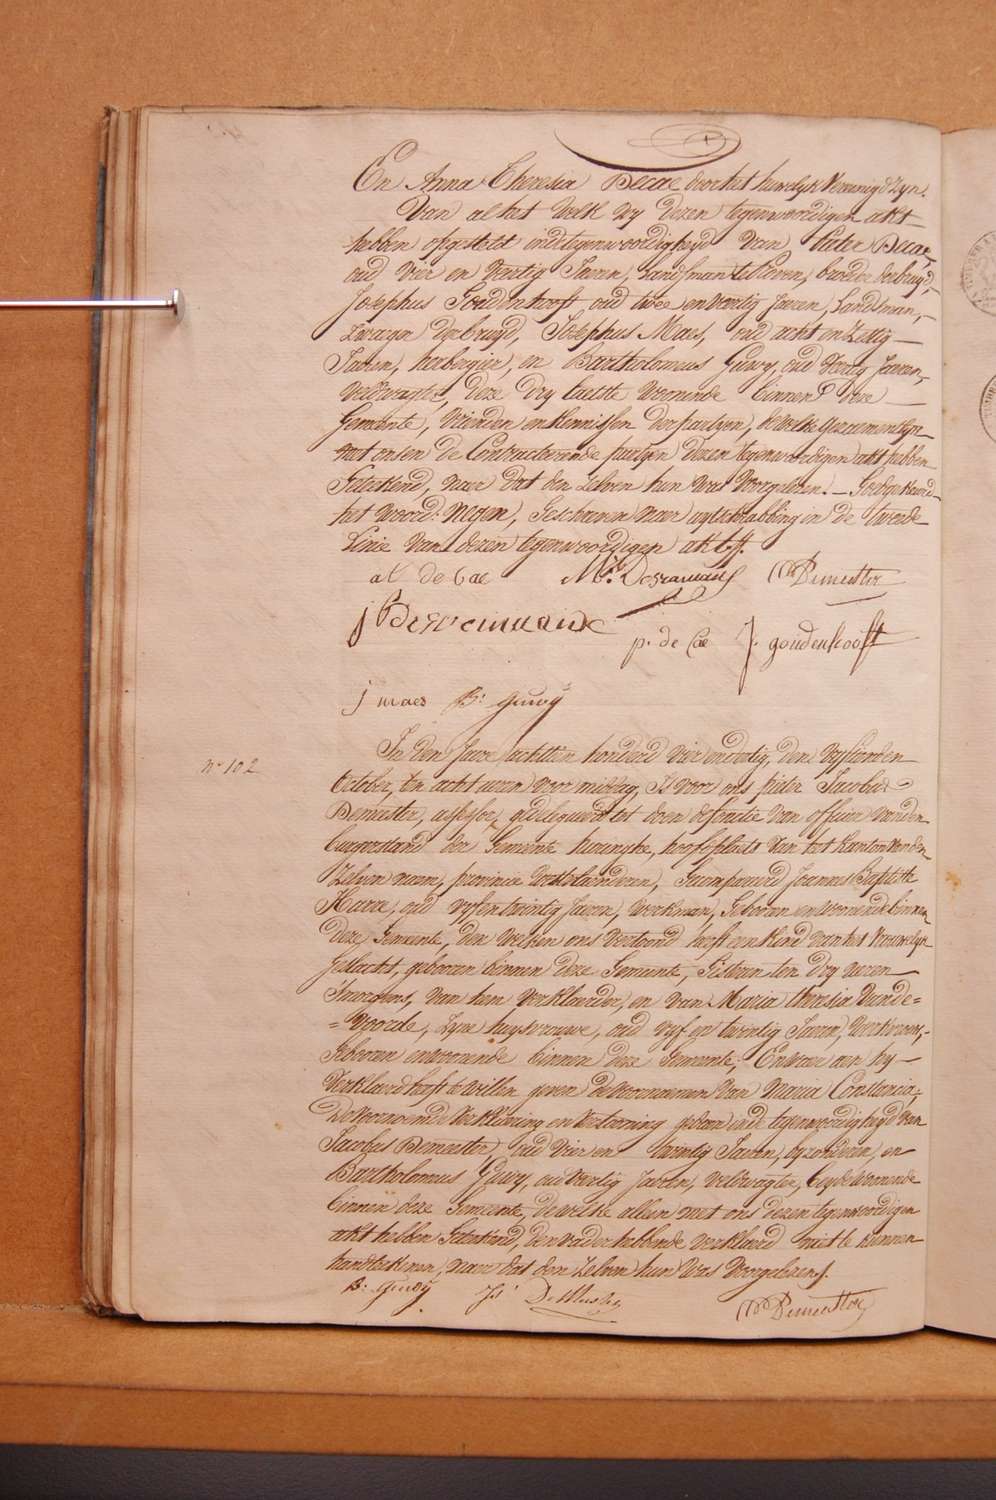 En Anna Theresia Decae door het huwelyk Vereenigd Zyn.
Van al het welk wy dezen tegenwoordigen akt
hebben opgesteld in de tegenwoordigheyd van Pieter Decae,
oud vier en dertig Jaeren, Landsman te, broeder der bruyd,
Josephus Goudenhooft oud twee en veertig Jaeren, Landsman,
Zwager der bruyd, Josephus Maes, oud acht en Zestig
Jaeren, herbergier, en Bartholomeus Guwy, oud Veertig Jaeren,
veldwagter, deze dry laetste woonende binnen deze
Gemeente, vrienden en kennissen der partyen, dewelke gezaementlyk
met ons en de Contracteerende partyen dezen tegenwoordigen akt hebben
Geteekend, naer dat den zelven hun was Voorgelezen. Goedgekeurd
het woord: Negen, Geschreven naer uytschrabbing in de tweede
Linie van dezen tegenwoordigen akt.
at de Cae M. Desramaus Demeester
j p. de Cae J. goudenhooft
j maes B: guwy
No 102
In den Jaere achttien honderd vier en dertig, den vyftienden
October, ten acht uren voor middag, Is voor ons pieter Jacobus
Demeester, assessor, gedelegueerd tot doen de functie van officier van den
burgerstand der Gemeente, hoofdplaets van het Kanton van den
Zelven naem, provincie Westvlaenderen, Gecompareerd Joannes Baptiste
oud vyf en twintig Jaeren, werkman, Geboren en woonende binnen
deze Gemeente, den welken ons vertoond heeft een kind van het vrouwelyk
geslacht, geboren binnen deze Gemeente, Gisteren ten dry uren
van hem verklaerder, en van Maria theresia Vande=
=Voorde, Zyne huysvrouwe, oud vyf en twintig Jaeren,
Geboren en woonende binnen deze Gemeente, En waer aen hy
Verklaerd heeft te willen geven de voornamen van Maria Constancia,
De voornoemde Verklaering en Vertooning gedaen in de tegenwoordigheyd van
Jacobus Demeester, oud vier en twintig Jaeren, byzonderen, en
Bartholomeus Guwy, oud Veertig Jaeren, Veldwagter, beyde woonende
binnen deze Gemeente, dewelke alleen met ons dezen tegenwoordigen
akt hebben Geteekend, den vader hebbende verklaerd niet te kunnen
handteekenen, naer dat den Zelven hun was Voorgelezen.
B: guwy Js DeMeester Demeester